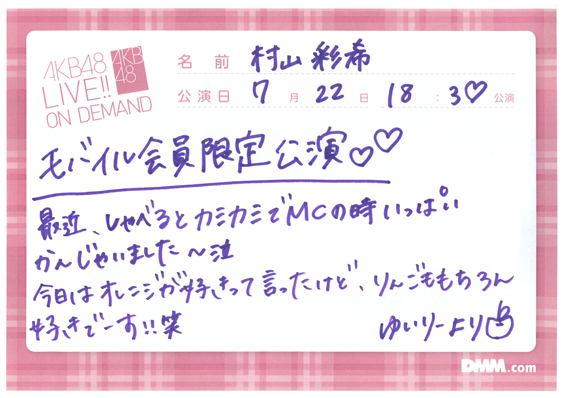 AKB48
LIVE!!
ON DEMAND
AKB
48
名前 村山彩希
公演日 7月22日 18:30公演
モバイル会員限定公演♡♡
最近、しゃべるとカミカミでMCの時いっぱい
かんじゃいました〜泣
今日はオレンジが好きって言ったけど、りんごももちろん
好きでーす!!笑
ゆいりーより
DMM.com